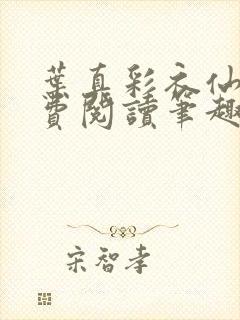 葉真彩衣仙
費閱讀筆趣
宋智孝